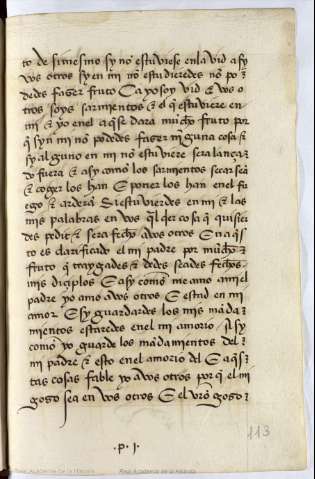 to de simesmo sy nõ estuviese en la vid asy
vos otros sy en mi nõ estudieredes nõ po
dedes faser fruto Ca yo soy vid E vos o
tros soys sarmientos E el q̃ estuviere en
mi E yo en el aq̃se dara mucho fruto por
q̃ syn mi nõ podedes faser ninguna cosa E
sy alguno en mi nõ estuviere sera lança
do fuera E asy como los sarmientos secar sea
E coger los han E poner los han en el fu
ego E ardera Si estuvierdes en mi E las
mis palabras en vos q̃l q̃er cosa q̃ quisier
des pedit E sera fecho a vos otros En aq̃s
to es clarificado el mi padre por mucho
fruto q̃ traygades E dedes seades fechos
mis diçiplos E asy como me amo a mi el
padre yo amo a vos otros E estad en mi
amor E sy guardardes los mis mãda
mientos estaredes en el mi amorio asy
como yo guarde los mãdamientos del
mi padre E esto en el amorio del E aq̃s
tas cosas fable yo a vos otros por q̃ el mi
goso sea en vos otros E el vr̃o goso
113
.P.I.
Real Academia de la Historia
Real Academia de la Historia